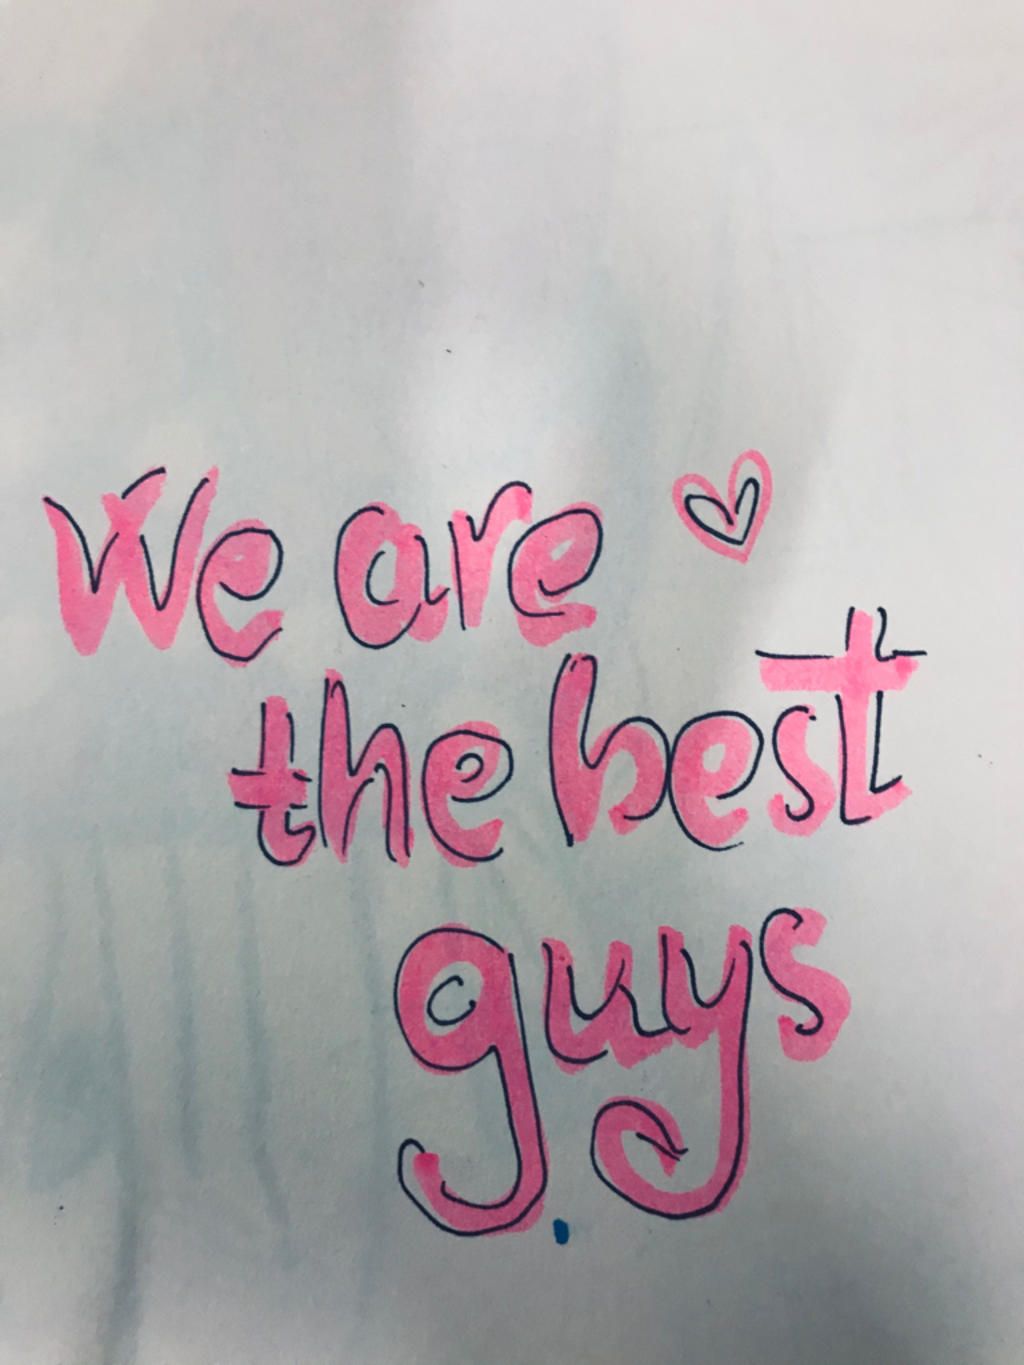 We are
the best
guys